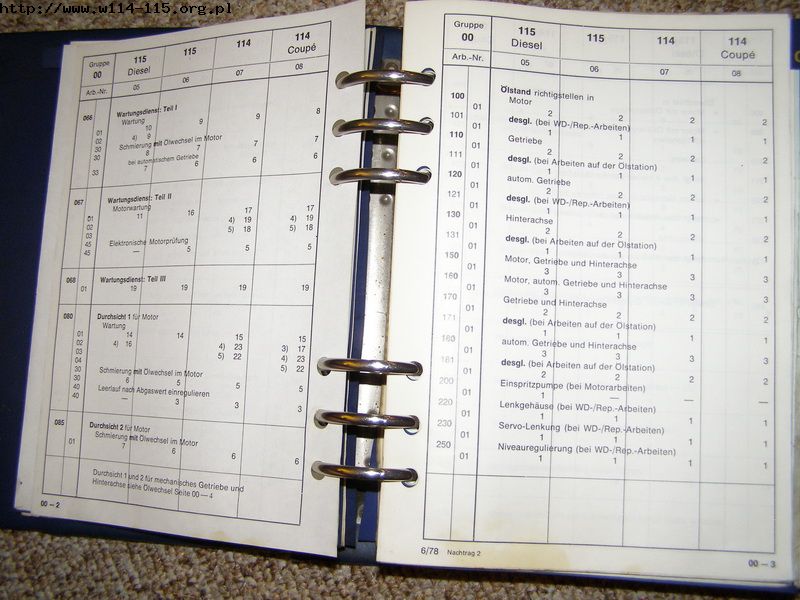 http://www.w114-115.org.pl
Gruppe 00 115 Diesel 115 114 114 Coupé
Arb.-Nr. 05 06 07 08
066 Wartungsdienst: Teil I
Wartung
01 10 9 9 8
02 4) 9
30 Schmierung mit Ölwechsel im Motor
30 8 7 7 7
bei automatischem Getriebe
33 7 6 6 6
067 Wartungsdienst: Teil II
Motorwartung
01 11 16 17 17
02 4) 19 4) 19
03 5) 18 5) 18
45 Elektronische Motorprüfung
45 — 5 5 5
068 Wartungsdienst: Teil III
01 19 19 19 19
080 Durchsicht 1 für Motor
Wartung
01 14 14 15 15
02 4) 16 4) 23 3) 17
03 5) 22 4) 23
04 5) 22
30 Schmierung mit Ölwechsel im Motor
30 6 5 5 5
40 Leerlauf nach Abgaswert einregulieren
40 — 3 3 3
085 Durchsicht 2 für Motor
Schmierung mit Ölwechsel im Motor
01 7 6 6 6
Durchsicht 1 und 2 für mechanisches Getriebe und
Hinterachse siehe Ölwechsel Seite 00—4
00 — 2
Gruppe 00 115 Diesel 115 114 114 Coupé
Arb.-Nr. 05 06 07 08
100 Ölstand richtigstellen in
Motor
01 2 2 2 2
101 desgl. (bei WD-/Rep.-Arbeiten)
01 1 1 1 1
110 Getriebe
01 2 2 2 2
111 desgl. (bei Arbeiten auf der Ölstation)
01 1 1 1 1
120 autom. Getriebe
01 2 2 2 2
121 desgl. (bei WD-/Rep.-Arbeiten)
01 1 1 1 1
130 Hinterachse
01 2 2 2 2
131 desgl. (bei Arbeiten auf der Ölstation)
01 1 1 1 1
150 Motor, Getriebe und Hinterachse
01 3 3 3 3
160 Motor, autom. Getriebe und Hinterachse
01 3 3 3 3
170 Getriebe und Hinterachse
01 2 2 2 2
171 desgl. (bei Arbeiten auf der Ölstation)
01 1 1 1 1
180 autom. Getriebe und Hinterachse
01 3 3 3 3
181 desgl. (bei Arbeiten auf der Ölstation)
01 2 2 2 2
200 Einspritzpumpe (bei Motorarbeiten)
01 1 — — —
220 Lenkgehäuse (bei WD-/Rep.-Arbeiten)
01 1 1 1 1
230 Servo-Lenkung (bei WD-/Rep.-Arbeiten)
01 1 1 1 1
250 Niveauregulierung (bei WD-/Rep.-Arbeiten)
01 1 1 1 1
6/78 Nachtrag 2
00 — 3